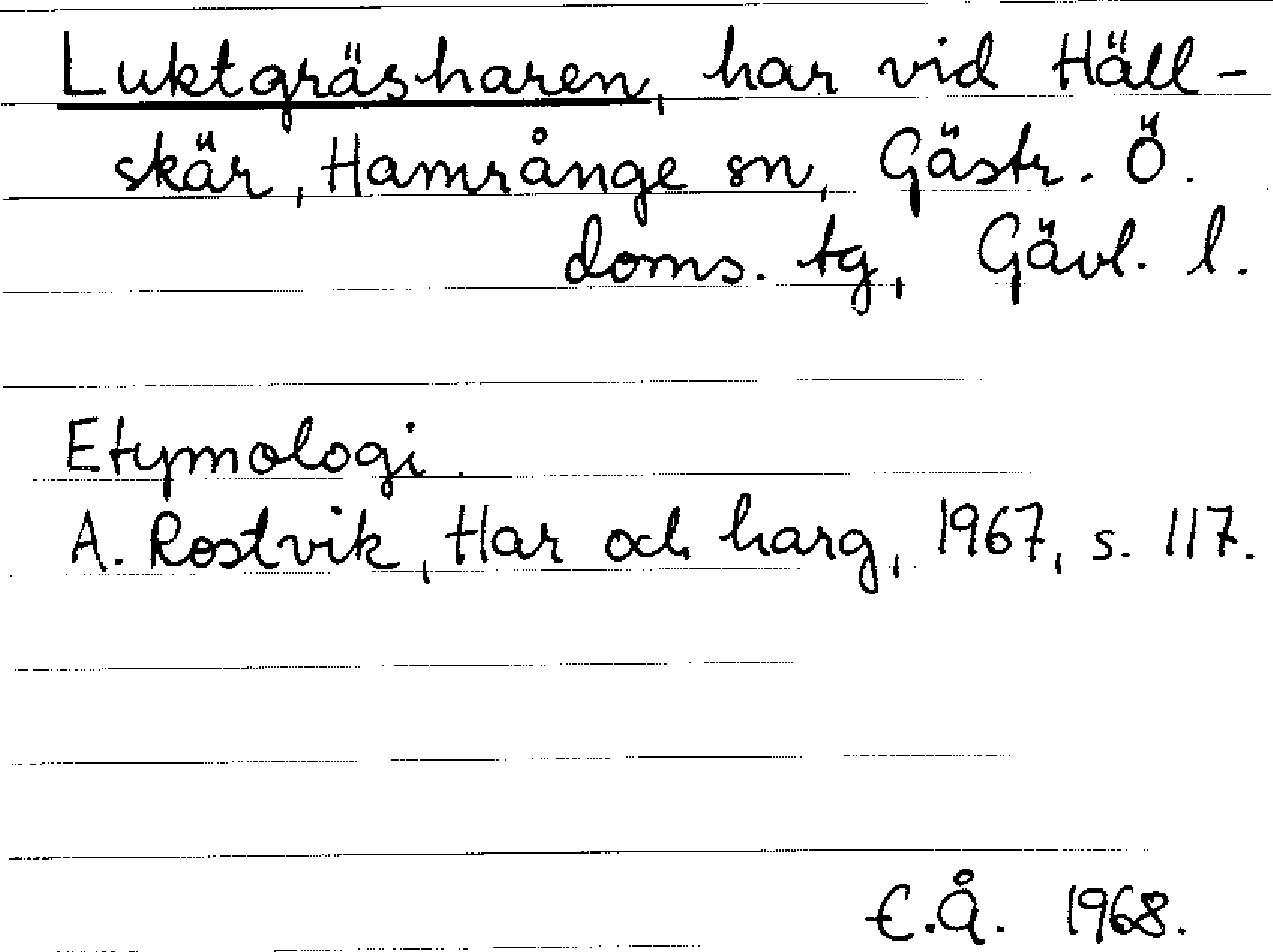 Luktgräsharen, har vid Häll-
skär, Hamrånge sn, Gästr. Ö.
doms. tg, Gävl. l.
Etymologi.
A. Rostvik, Har och harg, 1967, s. 117.
E.Å. 1968.